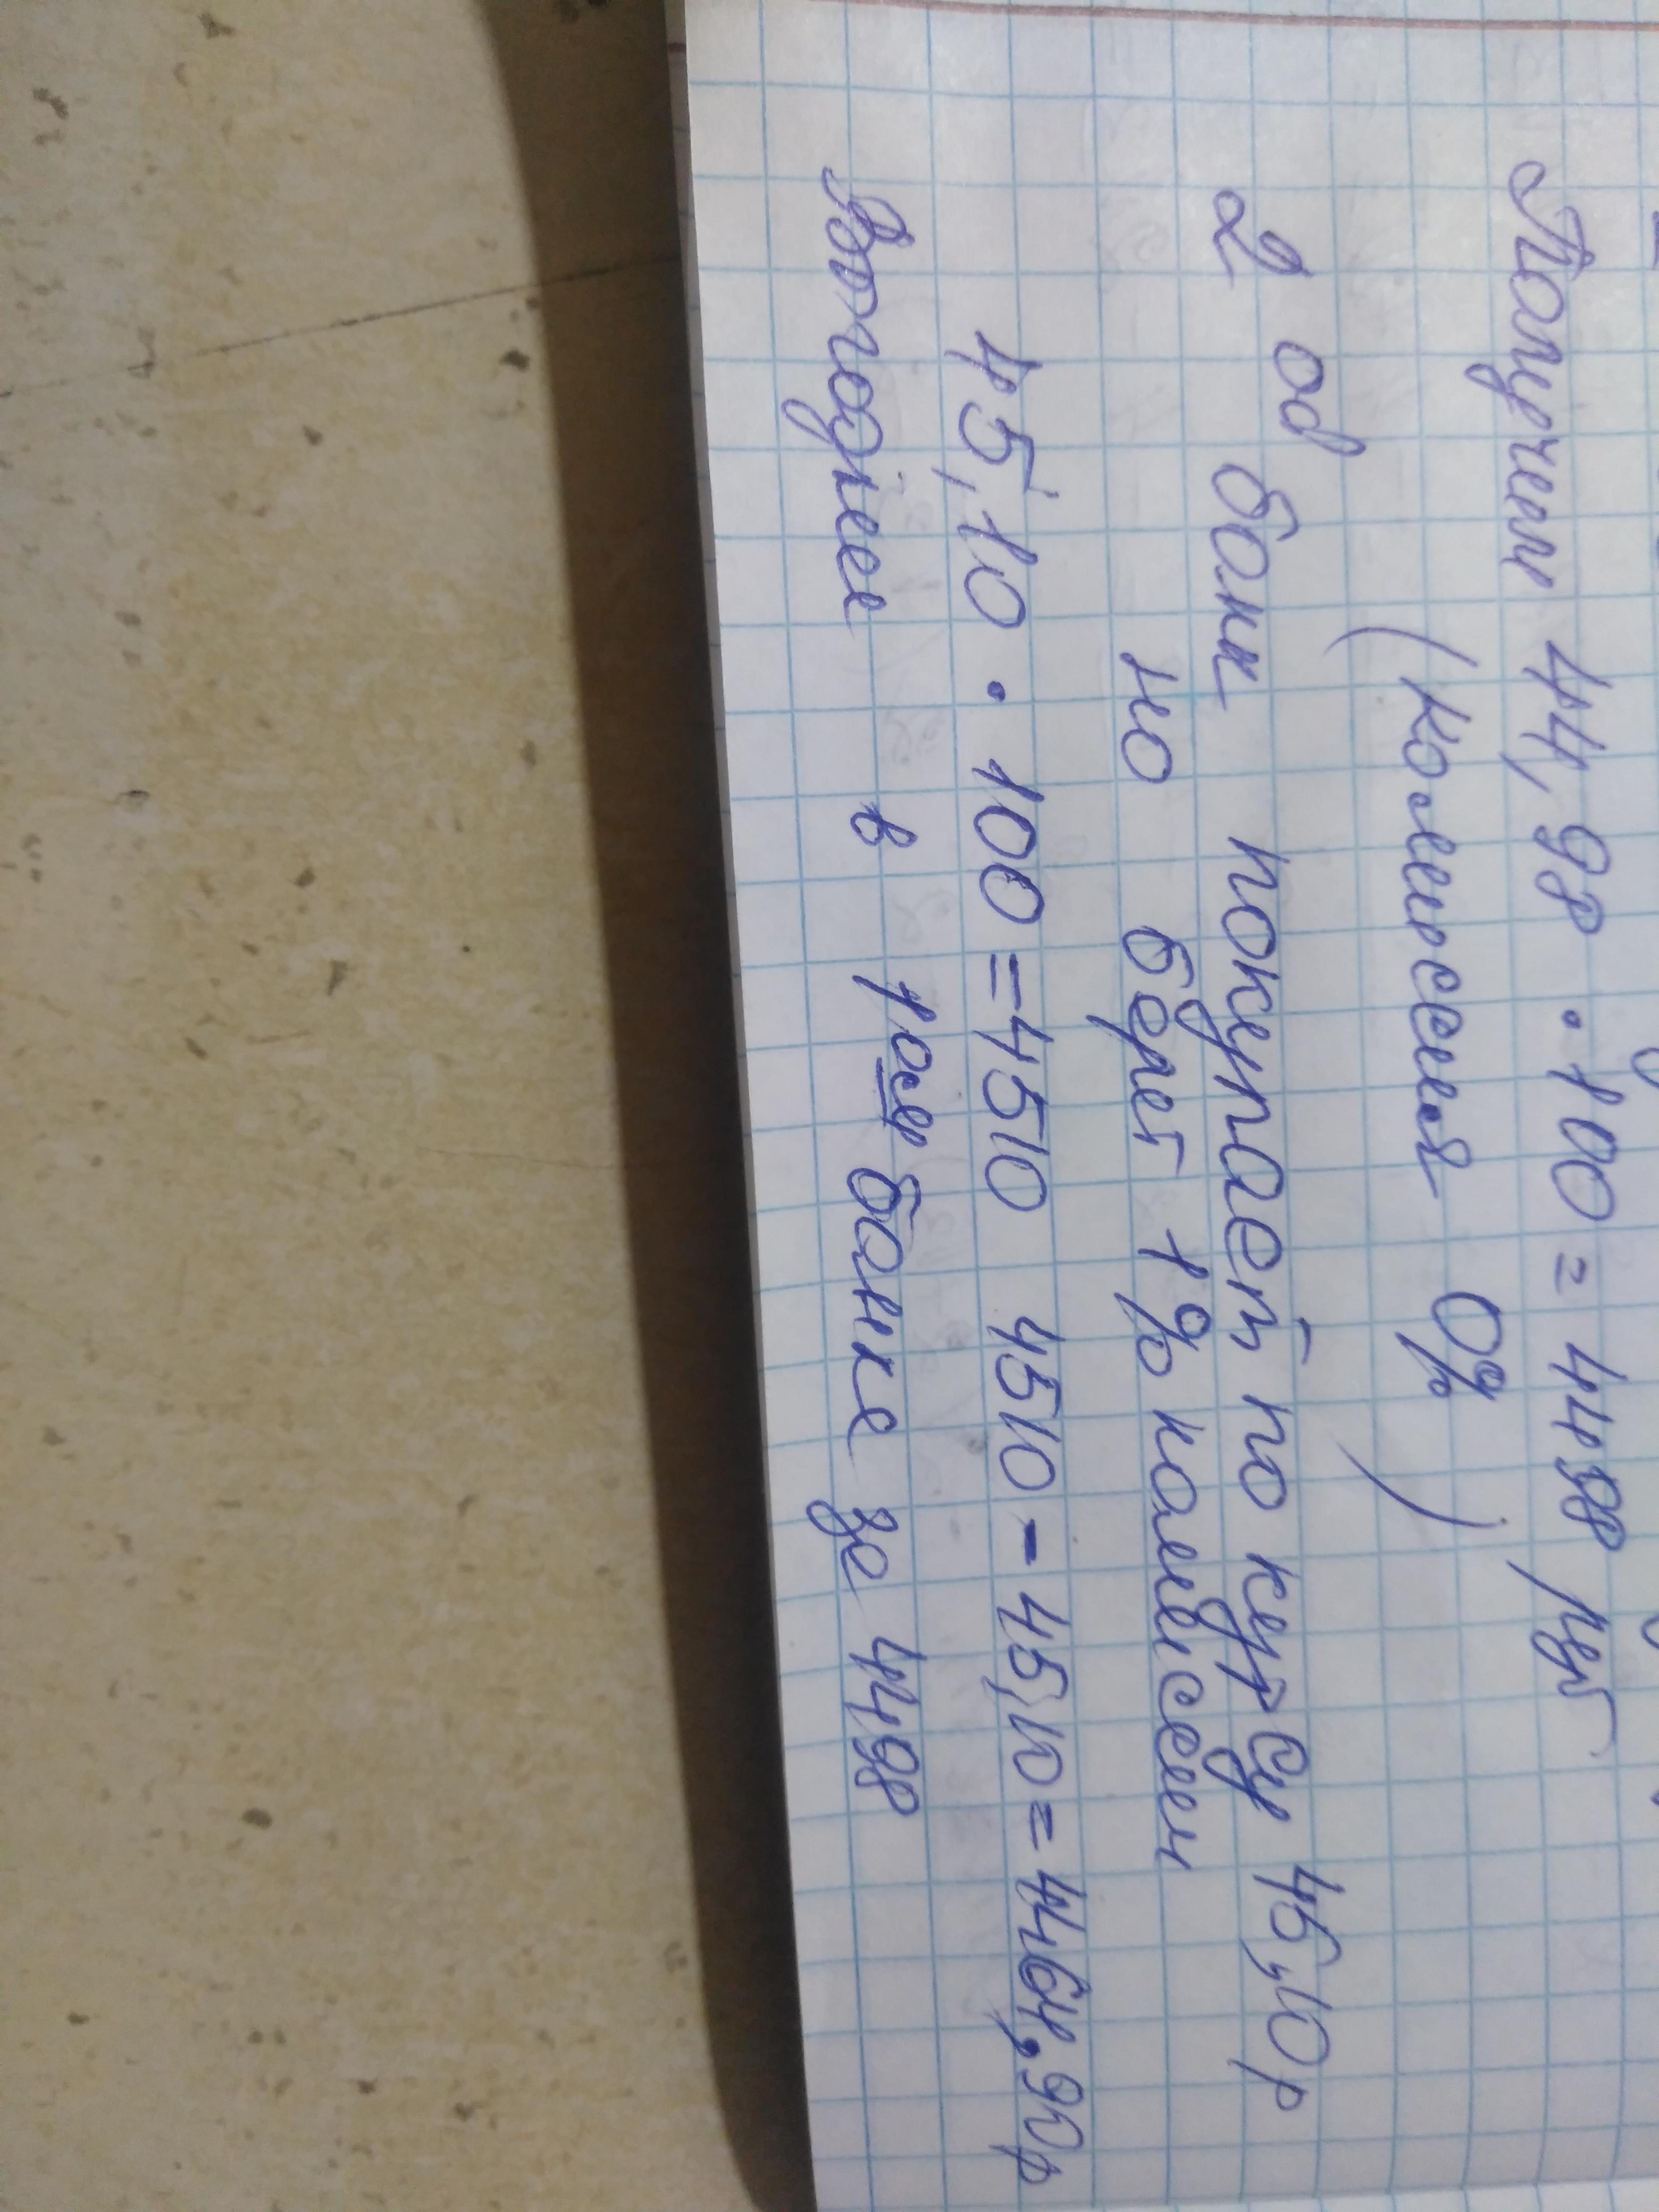 Получем 44,98 · 100 = 4498 руб
(комиссия 0%)
2 ой банк покупает по курсу 45,10р
но берет 1% комиссеи
45,10 · 100 = 4510 4510 - 45,10 = 4464,90р
Выгоднее в банке за 4498